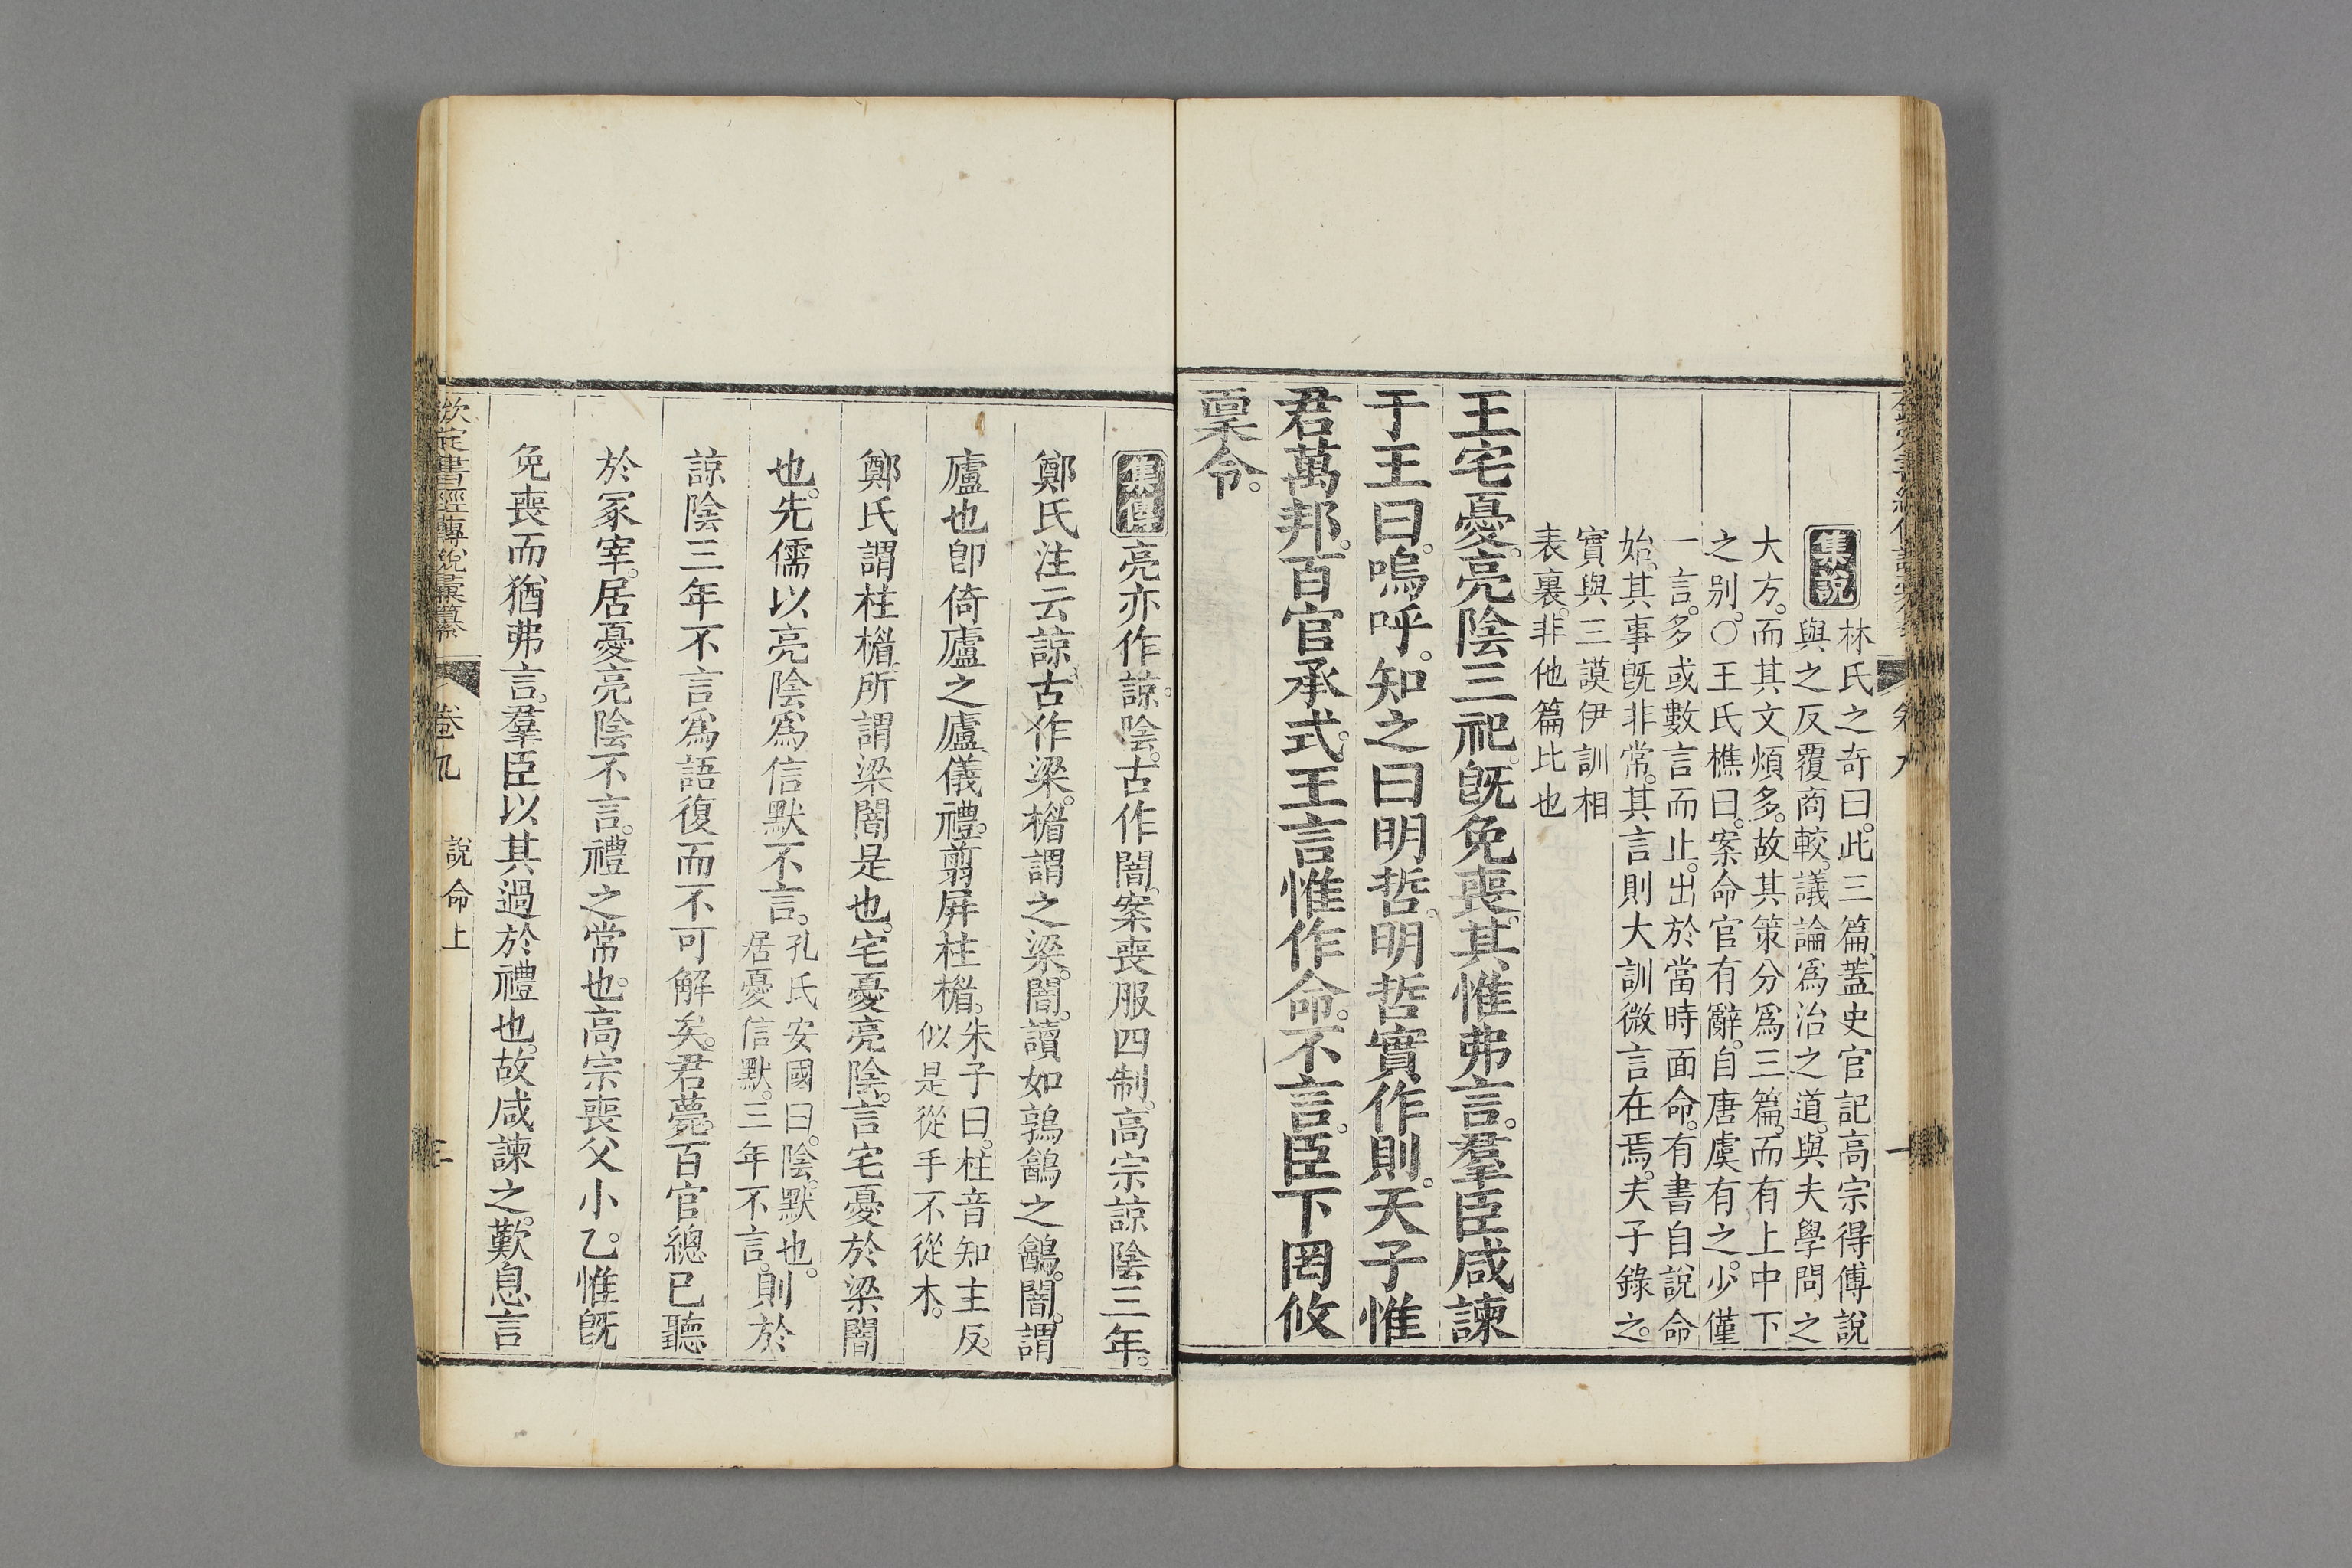 集說
林氏之奇曰。此三篇蓋史官記高宗得傅說
與之反覆商較。議論為治之道。與夫學問之
大方。而其文煩多。故其策分為三篇。而有上中下
之别。○王氏樵曰。案命官有辭。自唐虞有之。少僅
一言。多或數言而止。出於當時面命。有書自說命
始。其事旣非常。其言則大訓微言在焉。夫子錄之。
實與三謨伊訓相
表裏。非他篇比也
王宅憂。亮陰三祀。旣免喪。其惟弗言。羣臣咸諫
于王曰。嗚呼。知之曰明哲。明哲實作則。天子惟
君萬邦。百官承式。王言惟作命。不言。臣下罔攸
稟令。
集傳亮亦作諒。陰。古作闇。案喪服四制。高宗諒陰三年。
鄭氏注云。諒。古作梁。楣謂之梁。闇。讀如鶉鷂之鷂。闇。謂
廬也。卽倚廬之廬。儀禮。翦屏柱楣。朱子曰。柱音知主反。
似是從手不從木。
鄭氏謂柱楣所謂梁闇是也。宅憂亮陰。言宅憂於梁闇
也。先儒以亮陰為信默不言。孔氏安國曰。陰。默也。
居憂信默。三年不言。則於
諒陰三年不言為語復而不可解矣。君薨。百官總已聽
於冢宰。居憂亮陰不言。禮之常也。高宗喪父小乙。惟旣
免喪而猶弗言。羣臣以其過於禮也。故咸諫之。歎息言
欽定書經傳說彙纂 卷九 說命上 三